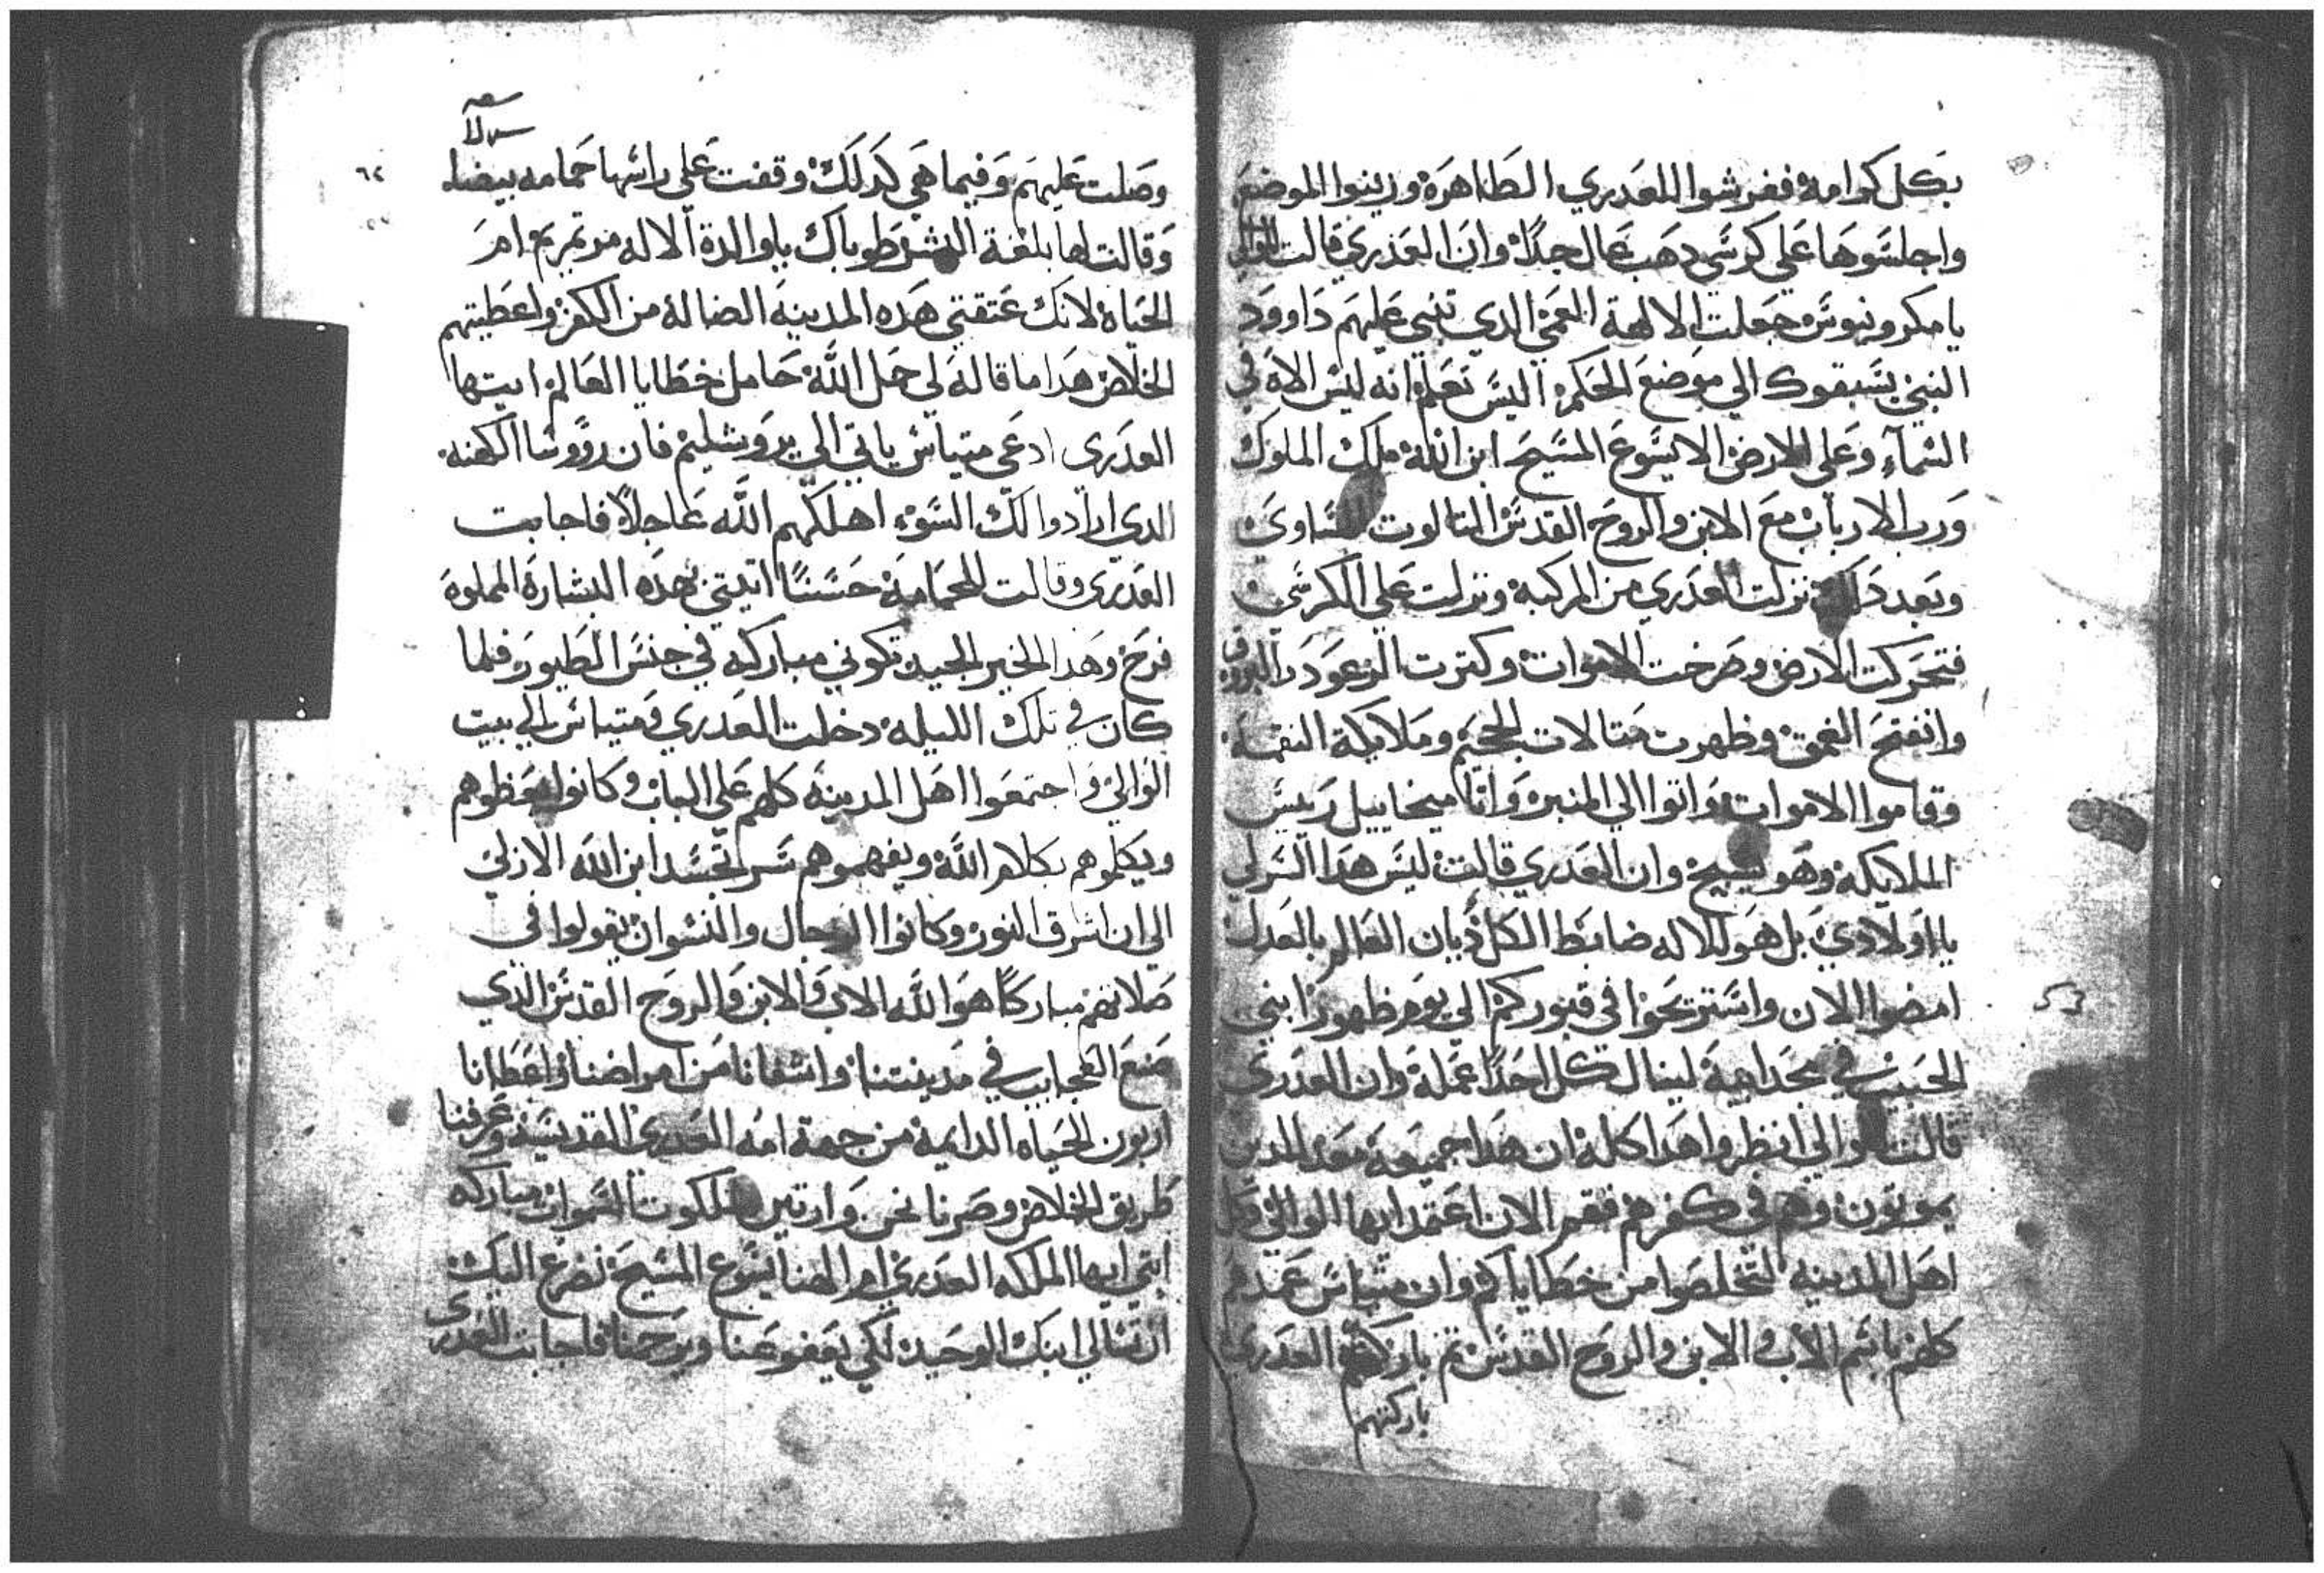 بكل كرامه ففرشوا للعدري الطاهره وزينوا الموضع
واجلسوها علي كرسي دهب عال جدا وان العدري قالت للوالي
يا مكرونيوس جعلت الالهة العمي الدي تنبي عليهم داوود
النبي يسبقوك الي موضع الحكم اليس تعلم انه ليس الاه في
السماء وعلي الارض الا يسوع المسيح ابن الله ملك الملوك
ورب الارباب مع الابن والروح القدس التالوت المساوي
وبعد دالك نزلت العدري من المركبه ونزلت علي الكرسي
فتحركت الارض وصرخت الاموات وكترت الرعود والبروق
وانفتح العمق وظهرت متالات الجحيم وملايكة النقمه
وقاموا الاموات واتوا الي المنبر واتا ميخاييل رييس
الملايكه وهو يسبح وان العدري قالت ليس هدا السر لي
يا اولادي بل هو للاله ضابط الكل ديان العالم بالعدل
امضوا الان واستريحوا في قبوركم الي يوم ظهور ابني
الحبيب في مجد ابيه لينال كل احدا عمله وان العدري
قالت للوالي انظروا هدا كله ان هدا جميعه معد للدين
يموتون وهم في كفرهم فقم الان اعتمد ايها الوالي وكل
اهل المدينه لتخلصوا من خطاياكم وان متياس عمدهم
كلهم باسم الاب والابن والروح القدس تم باركتهم العدري
باركتهم
سلا
٦٤
وصلت عليهم وفيما هي كدلك وقفت علي راسها حمامه بيضاء
وقالت لها بلغة البشر طوباك يا والدة الاله مرتمريم ام
الحياه لانك عتقتي هده المدينه الضاله من الكفر واعطيتهم
الخلاص هدا ما قاله لي حمل الله حامل خطايا العالم ايتها
العدري ادعي متياس ياتي الي يروشليم فان رووسا الكهنه
الدي ارادوا لك السوء اهلكهم الله عاجلا فاجابت
العدري وقالت للحمامه حسنا اتيتي بهده البشاره المملوه
فرح وهدا الخير الجيد تكوني مباركه في جنس الطيور فلما
كان في تلك الليله دخلت العدري ومتياس الي بيت
الوالي واجتمعوا اهل المدينه كلهم علي الباب وكانوا يعظوهم
ويكلموهم بكلام الله ويفهموهم سر تجسد ابن الله الازلي
الي ان اشرق النور وكانوا الرجال والنسوان يقولوا في
صلاتهم مباركا هو الله الاب والابن والروح القدس الدي
صنع العجايب في مدينتنا واشفانا من امراضنا واعطانا
اربون الحياه الدايمه من جهة امه العدري القديسه وعرفنا
طريق الخلاص وصرنا نحن وارتين لملكوت السموات مباركه
انتي ايها الملكه العدري ام الهنا يسوع المسيح نضرع اليك
ان تسالي ابنك الوحيد لكي يعفو عنا ويرحمنا فاجابت العدري